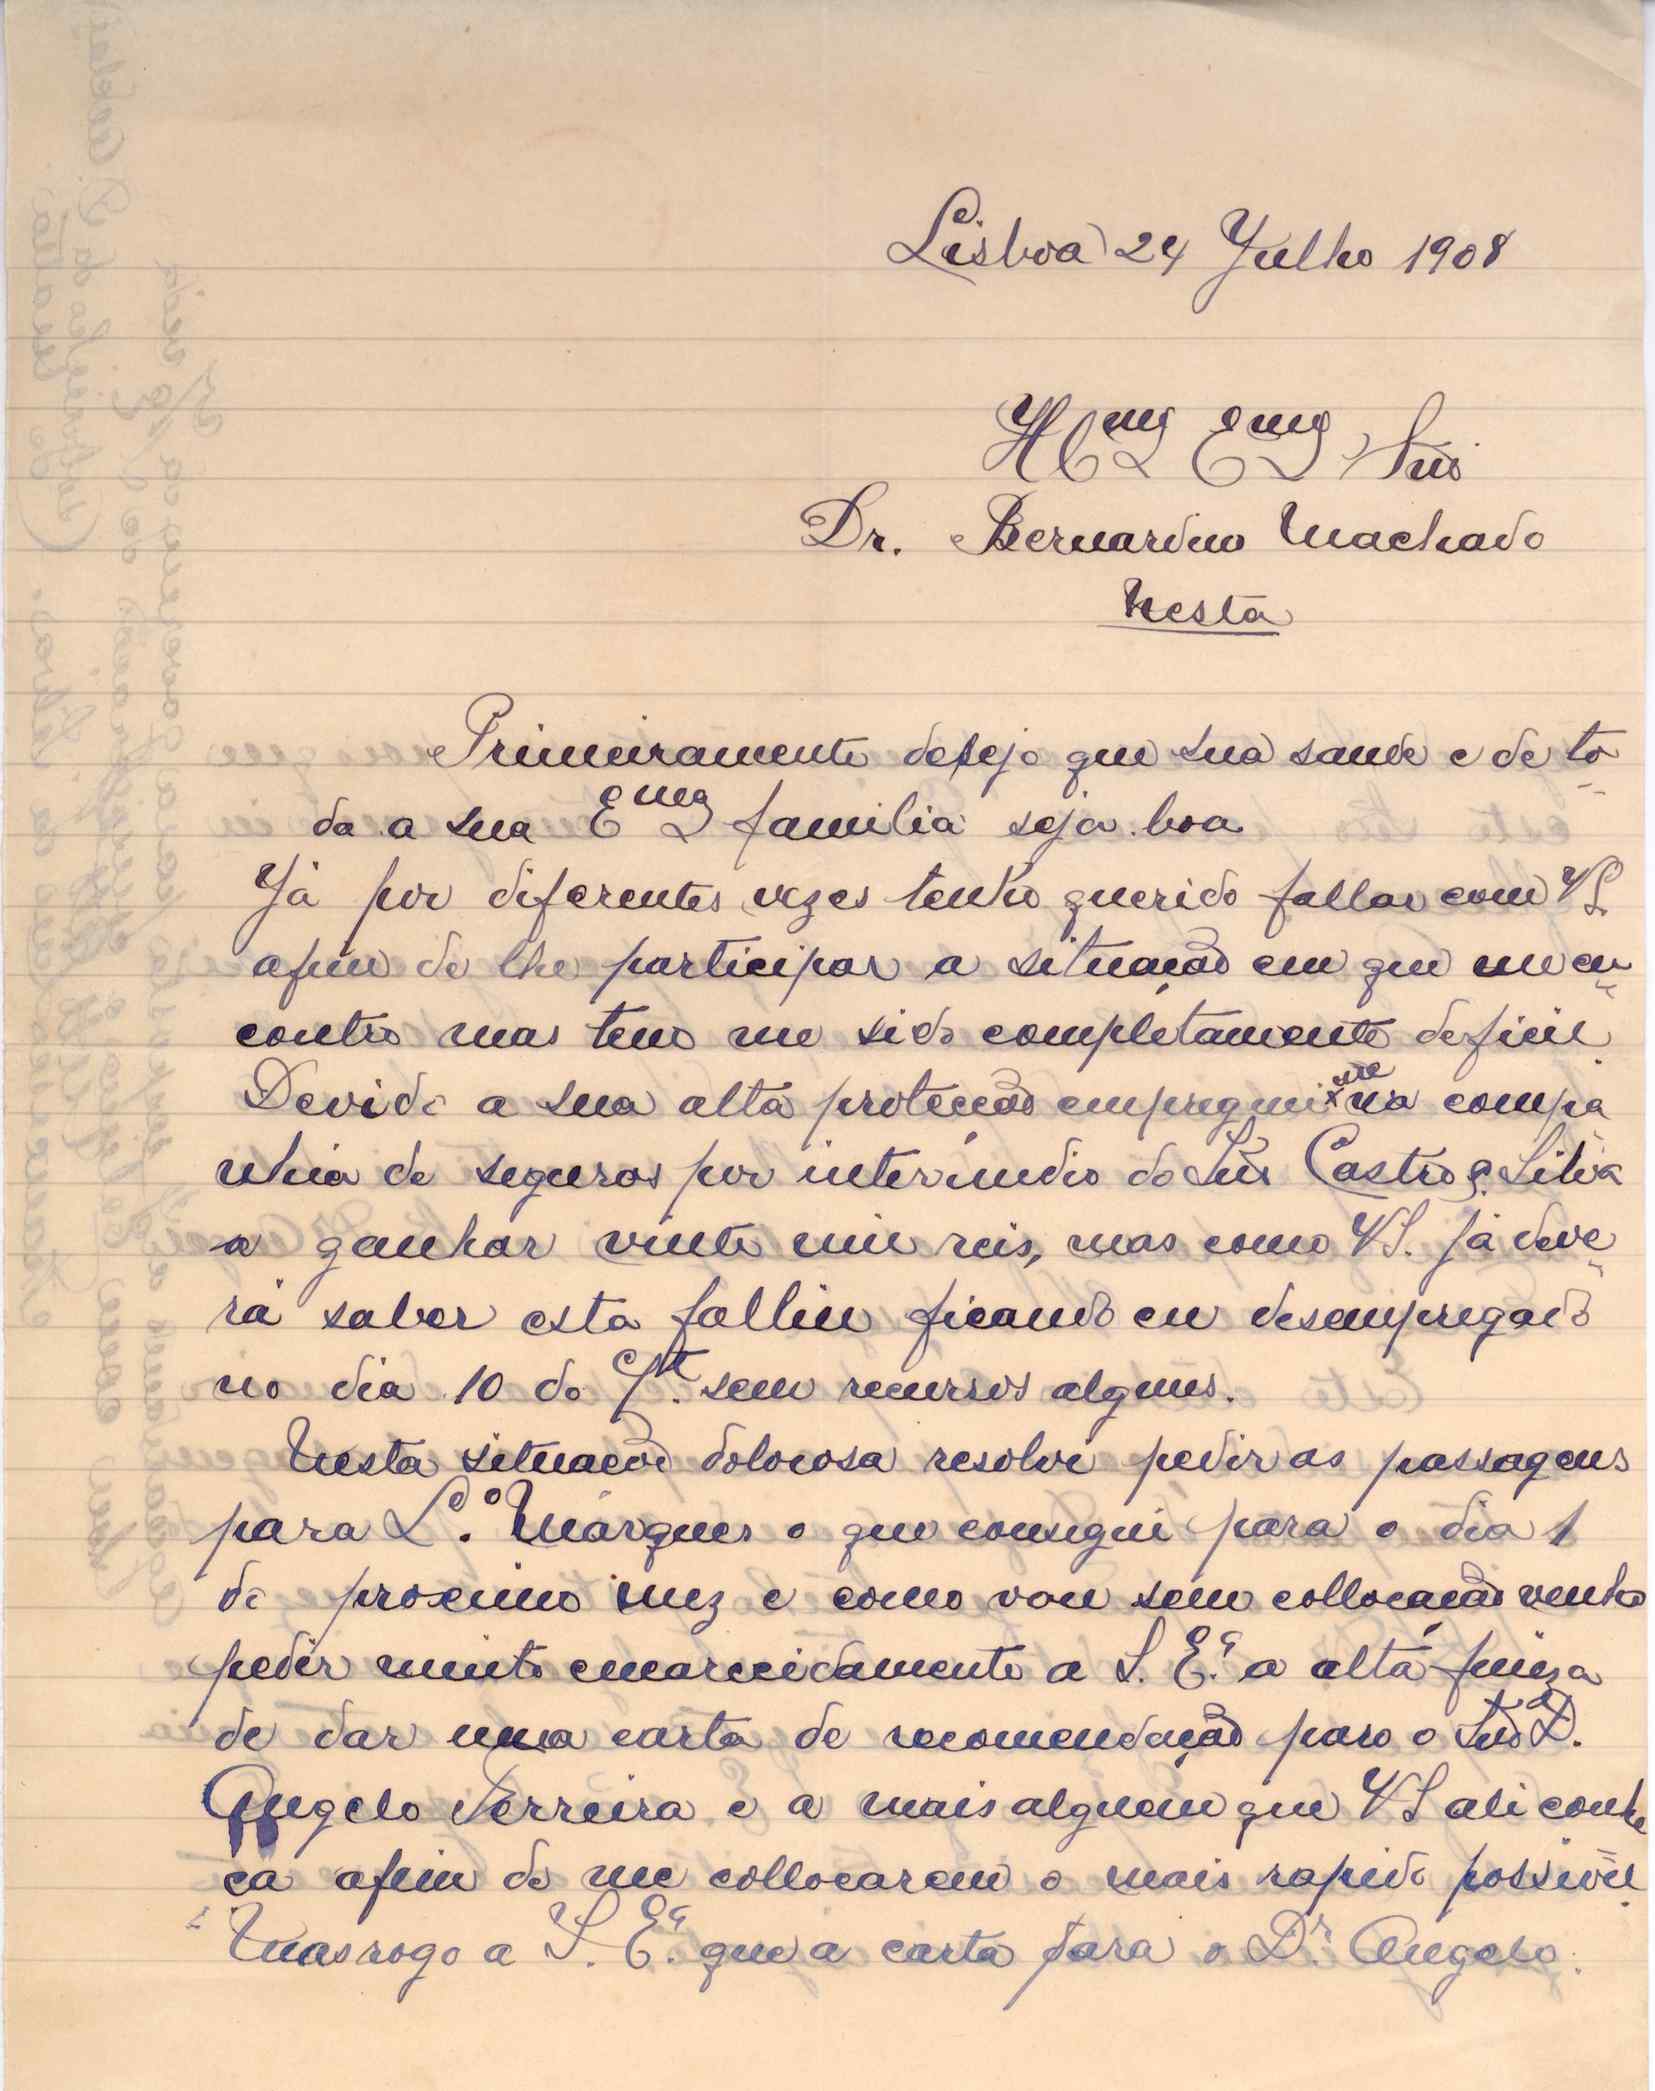 Lisboa 24 Julho 1908
Illmo Exmo Snr
Dr. Bernardino Machado
Nesta
Primeiramente desejo que sua saude e de to-
da a sua Exma familia seja boa
Já por diferentes vezes tenho querido fallar com VS.
afim de lhe participar a situação em que me en-
contro mas tem me sido completamente deficil.
Devido a sua alta protecção empreguei me na compa
nhia de seguros por intermedio do Snr Castro e Silva
a ganhar vinte mil reis, mas como VS. já deve-
rá saber esta falliu ficando eu desempregado
no dia 10 do Ct. sem recursos algums.
Nesta situação dolorosa resolvi pedir as passagens
para L.ço Marques o que consegui para o dia 1
do proximo mez e como vou sem collocação venho
pedir muito encarecidamente a S. Ex.ª a alta fineza
de dar uma carta de recomendação para o Snr Dr.
Angelo Ferreira e a mais alguem que VS ali conhe
ça afim de me collocarem o mais rapido possivel.
Mas rogo a S. Ex.ª que a carta para o Dr. Angelo